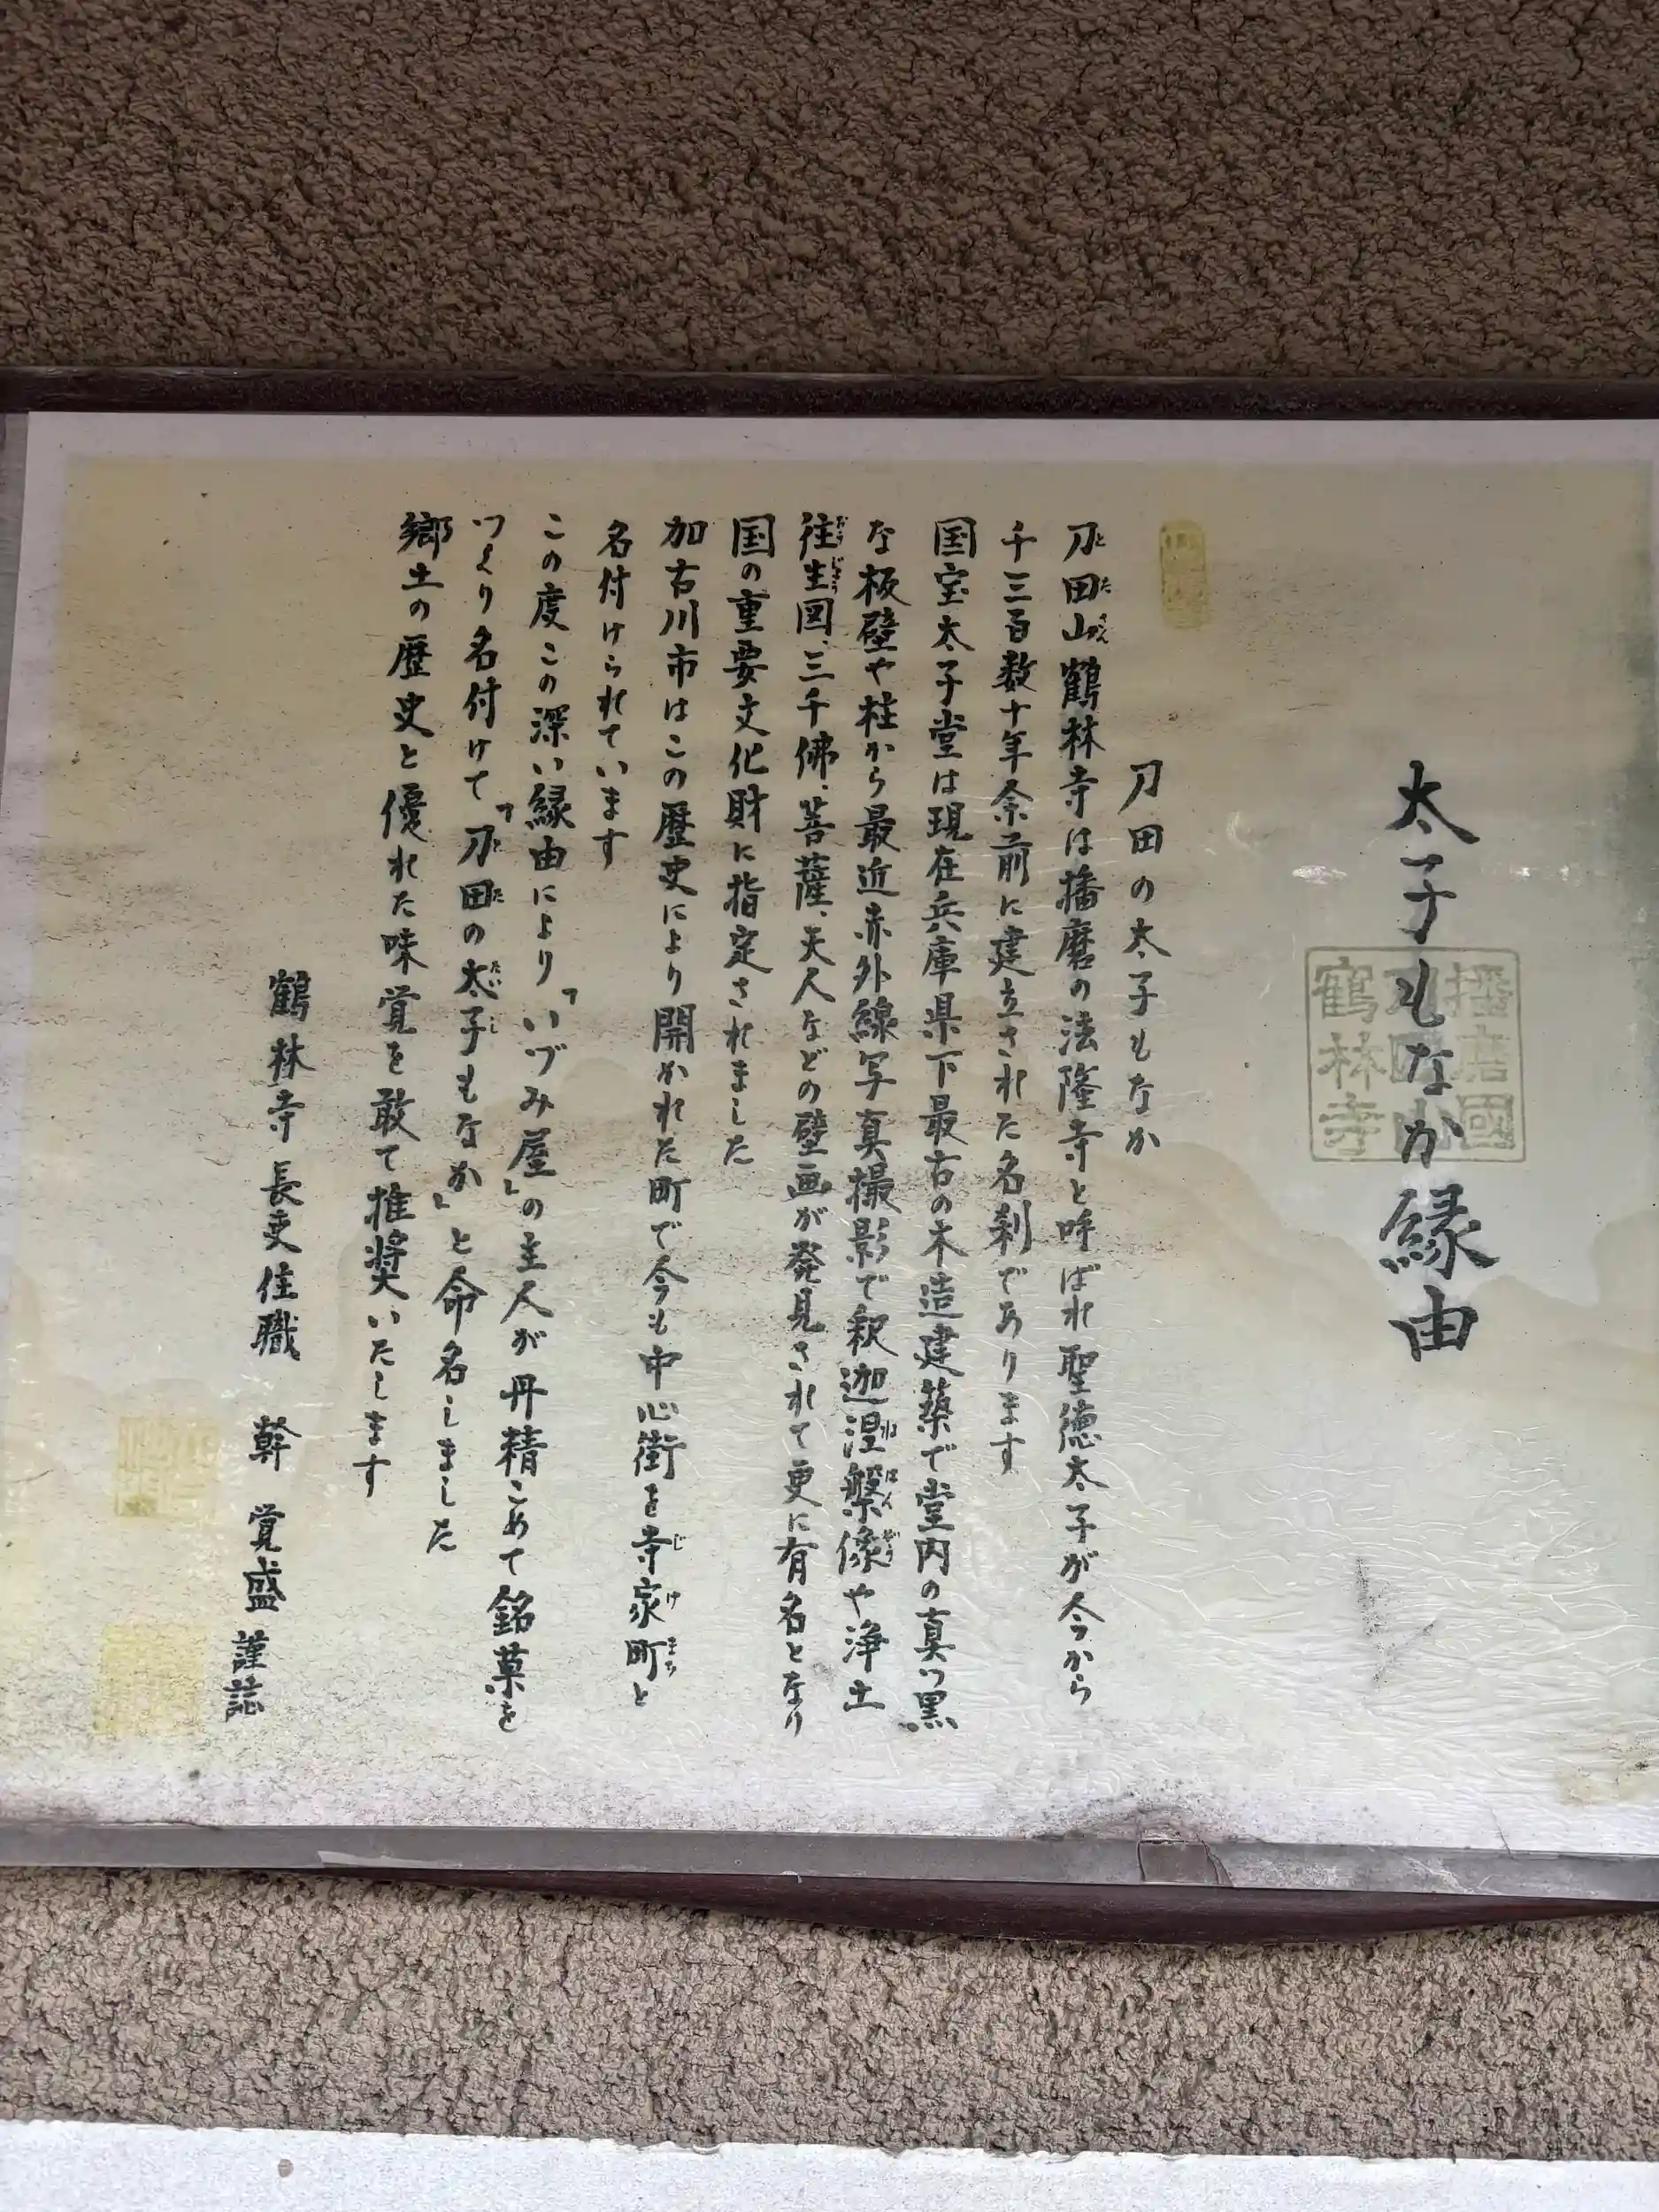 太子もなか縁由
播磨國
刀田山
鶴林寺
刀田の太子もなか
刀田山鶴林寺は播磨の法隆寺と呼ばれ聖徳太子が今から
千三百数十年余前に建立された名刹であります
国宝太子堂は現在兵庫県下最古の木造建築で堂内の真っ黒
な板壁や柱から最近赤外線写真撮影で釈迦涅槃像や浄土
往生図、三千佛、菩薩、天人などの壁画が発見されて更に有名となり
国の重要文化財に指定されました
加古川市はこの歴史により開かれた町で今も中心街を寺家町と
名付けられています
この度この深い縁由により「いづみ屋」の主人が丹精こめて銘菓を
つくり名付けて「刀田の太子もなか」と命名しました
郷土の歴史と優れた味覚を敢て推奨いたします
鶴林寺長吏住職 幹 覚盛 謹誌